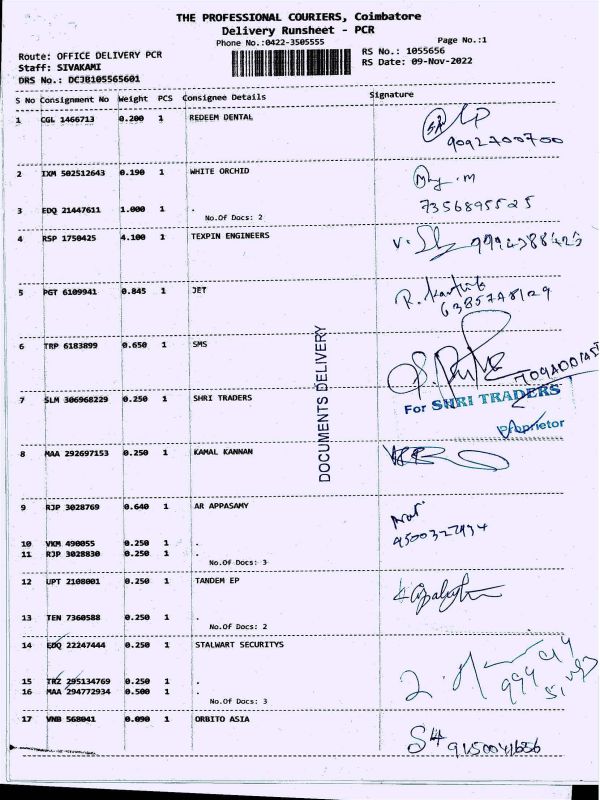 THE PROFESSIONAL COURIERS, Coimbatore
Delivery Runsheet - PCR
Phone No.:0422-3505555
Page No.:1
Route: OFFICE DELIVERY PCR
RS No.: 1055656
Staff: SIVAKAMI
RS Date: 09-Nov-2022
DRS No.: DCJB105565601
S No Consignment No Weight PCS Consignee Details Signature
1 CGL 1466713 0.200 1 REDEEM DENTAL
9092700700
2 IXM 502512643 0.190 1 WHITE ORCHID
3 EDQ 21447611 1.000 1 . 7356895525
No.Of Docs: 2
4 RSP 1750425 4.100 1 TEXPIN ENGINEERS
5 PGT 6109941 0.845 1 JET
6 TRP 6183899 0.650 1 SMS
DOCUMENTS DELIVERY
7 SLM 306968229 0.250 1 SHRI TRADERS
For SHRI TRADERS
Proprietor
8 MAA 292697153 0.250 1 KAMAL KANNAN
9 RJP 3028769 0.640 1 AR APPASAMY
10 VKM 490055 0.250 1 .
11 RJP 3028830 0.250 1 .
No.Of Docs: 3
12 UPT 2108001 0.250 1 TANDEM EP
13 TEN 7360588 0.250 1 .
No.Of Docs: 2
14 EDQ 22247444 0.250 1 STALWART SECURITYS
15 TRZ 295134769 0.250 1 .
16 MAA 294772934 0.500 1 .
No.Of Docs: 3
17 VNB 568041 0.090 1 ORBITO ASIA